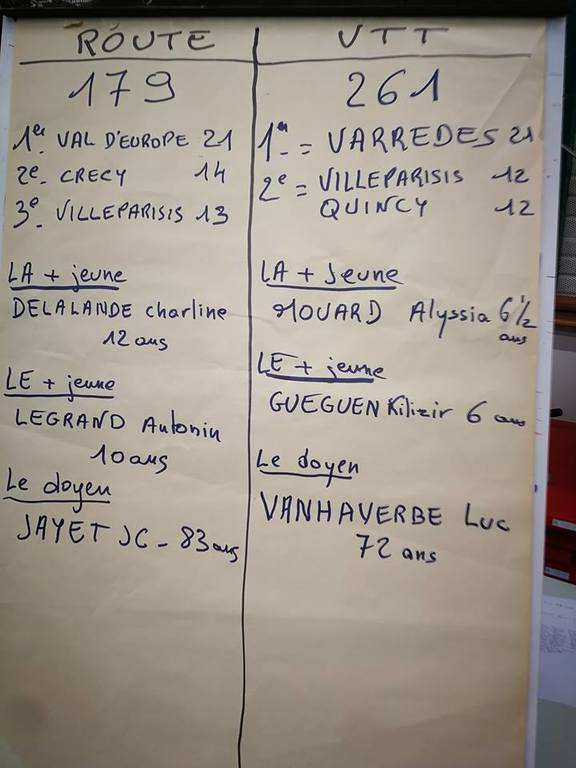 ROUTE
179
1er VAL D'EUROPE 21
2e - CRECY 14
3e - VILLEPARISIS 13
LA + jeune
DELALANDE charline
12 ans
LE + jeune
LEGRAND Antonin
10 ans
Le doyen
JAYET JC - 83 ans
VTT
261
1er = VARREDES 21
2e = VILLEPARISIS 12
QUINCY 12
LA + Jeune
MOUARD Alyssia 6 1/2
ans
LE + jeune
GUEGUEN 6 ans
Le doyen
VANHAVERBE Luc
72 ans